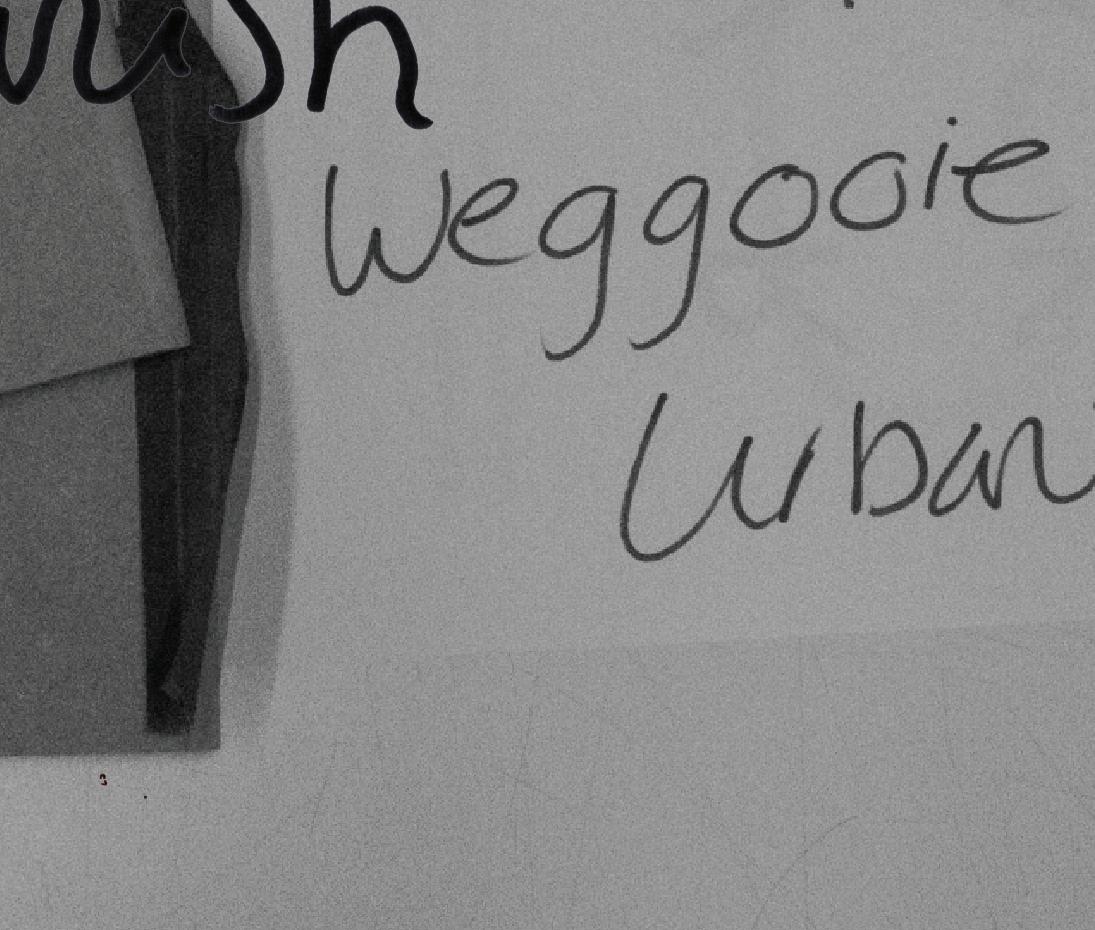 Weggooie
Urban